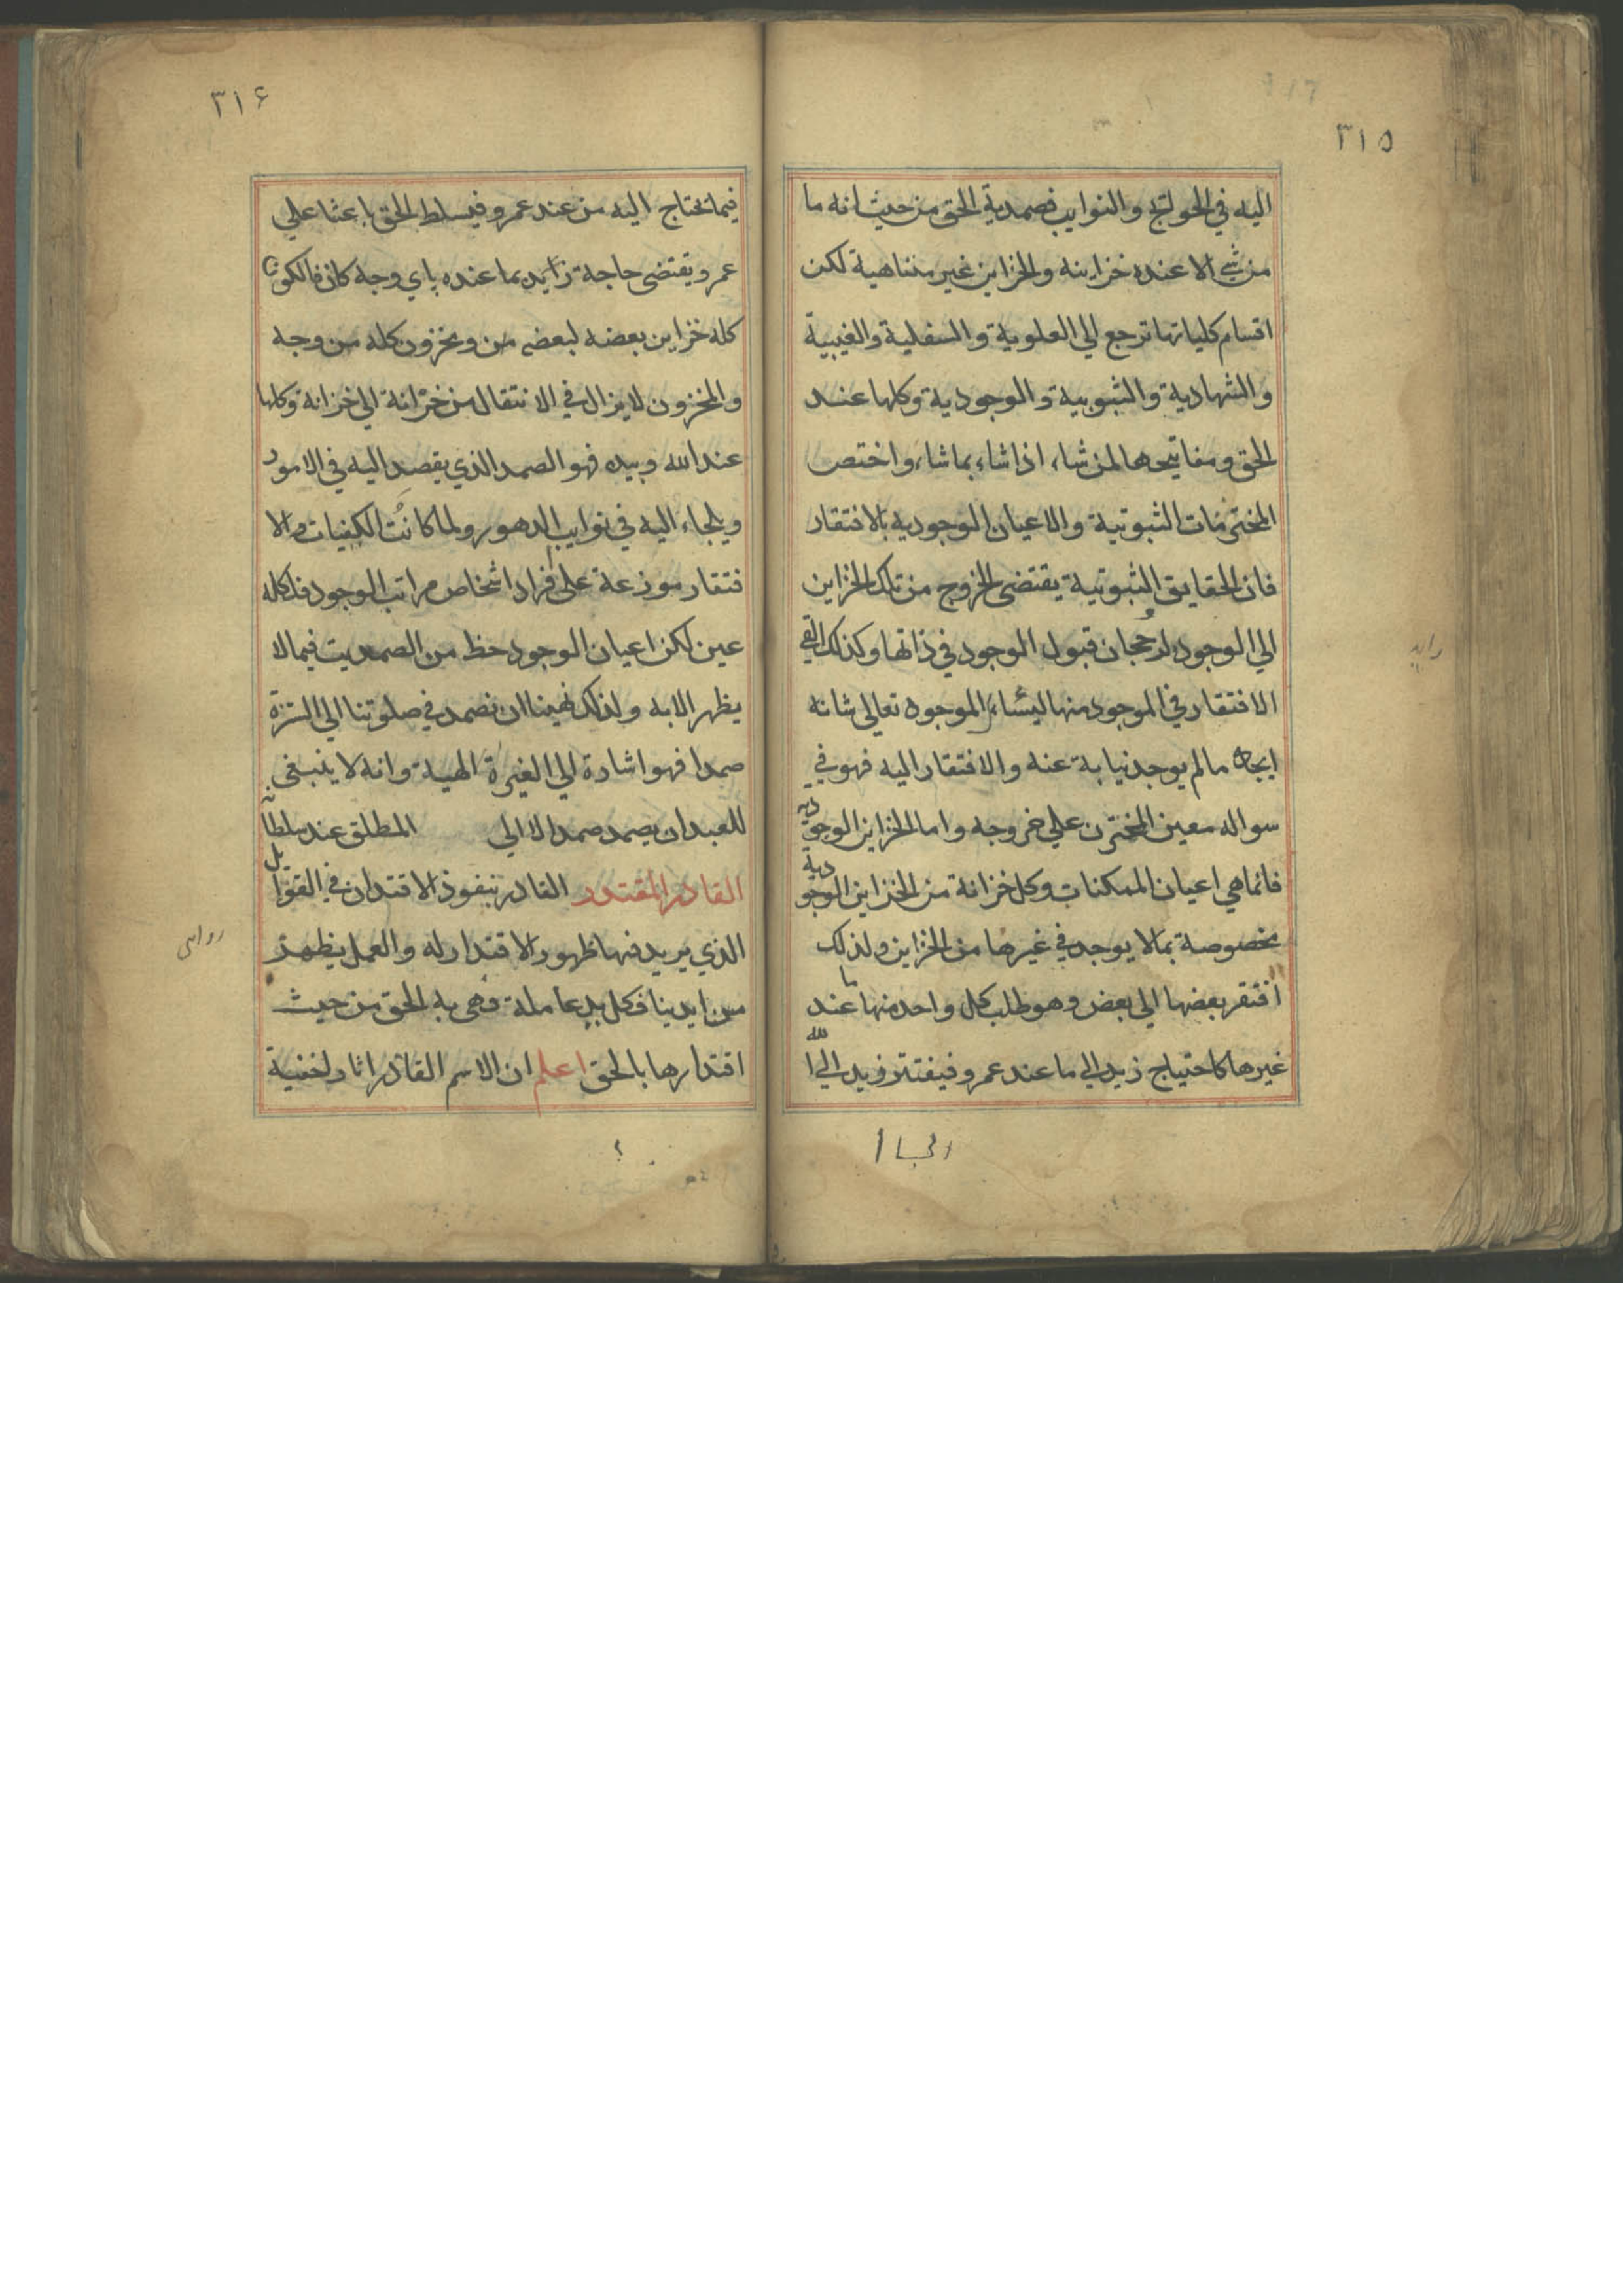 ٣١٥
اليه في الحوائج والنوايب فصمدية الحق من حيث انه ما
من شي الا عنده خزاينه والخزاين غير متناهية لكن
اقسام كلياتها ترجع الي العلوية والسفلية والغيبية
والشهادية والثبوبية والوجودية وكلها عند
الحق ومفاتيحها لمن شاء اذا شاء بما شاء واختص
المختزنات الثبوتية والاعيان الوجودية بالافتقار
فان الحقايق الثبوتية يقتضى الخروج من تلك الخزاين
الي الوجود لرجحان قبول الوجود في ذاتها وكذلك
الافتقار في الموجود منها الموجود تعالى شانه
ايجاد ما لم يوجد نيابة عنه والافتقار اليه فهو في
سواله معين المختزن علي خروجه واما الخزاين الوجودية
فانما هي اعيان الممكنات وكل خزانة من الخزاين الوجودية
مخصوصة بما لا يوجد في غيرها من الخزاين ولذلك
افتقر بعضها الي بعض وهو طلب كل واحد منها ما عند
غيرها كاحتياج زيد الي ما عند عمرو فيفتقر زيد الي الله
٣١۶
فيما يحتاج اليه من عند عمرو فيسلط الحق باعثا علي
عمرو يقتضى حاجة زايد بما عنده باي وجه كان فالكون
كله خزاين بعضه لبعض من ومخزون كله من وجه
والمخزون لا يزال في الانتقال من خزانة الي خزانة وكلها
عند الله وبيده فهو الصمد الذي يقصد اليه في الامور
ويلجاء اليه في نوايب الدهور ولما كانت الكيفيات والا
فتقار موزعة على افراد اشخاص مراتب الوجود
عين لكن اعيان الوجود حظ من الصمديت فيما لا
يظهر الا به ولذلك نهينا ان نصمد في صلوتنا الي السترة
صمدا فهو اشارة الي الغيرة الهية وانه لا ينبغى
للعبد ان يصمد صمد الا الي المطلق عند سلطانه
القادر المقتدر القادر بنفوذ الاقتدار في القوابل
الذي يريد فيها ظهور الاقتدار له والعمل يظهر
من ايدينا فكل يد عاملة فهى يد الحق من حيث
اقتدارها بالحق اعلم ان الاسم القادر اثار لخفية